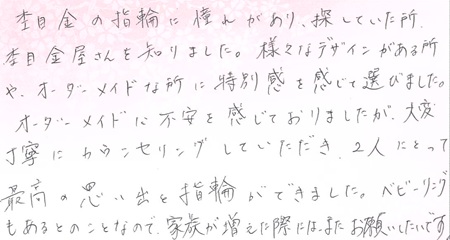 杢目金の指輪に憧れがあり、探していた所、
杢目金屋さんを知りました。様々なデザインがある所
や、オーダーメイドな所に特別感を感じて選びました。
オーダーメイドに不安を感じておりましたが、大変
丁寧にカウンセリングしていただき、2人にとって
最高の思い出と指輪ができました。ベビーリング
もあるとのことなので、家族が増えた際にはまたお願いしたいです